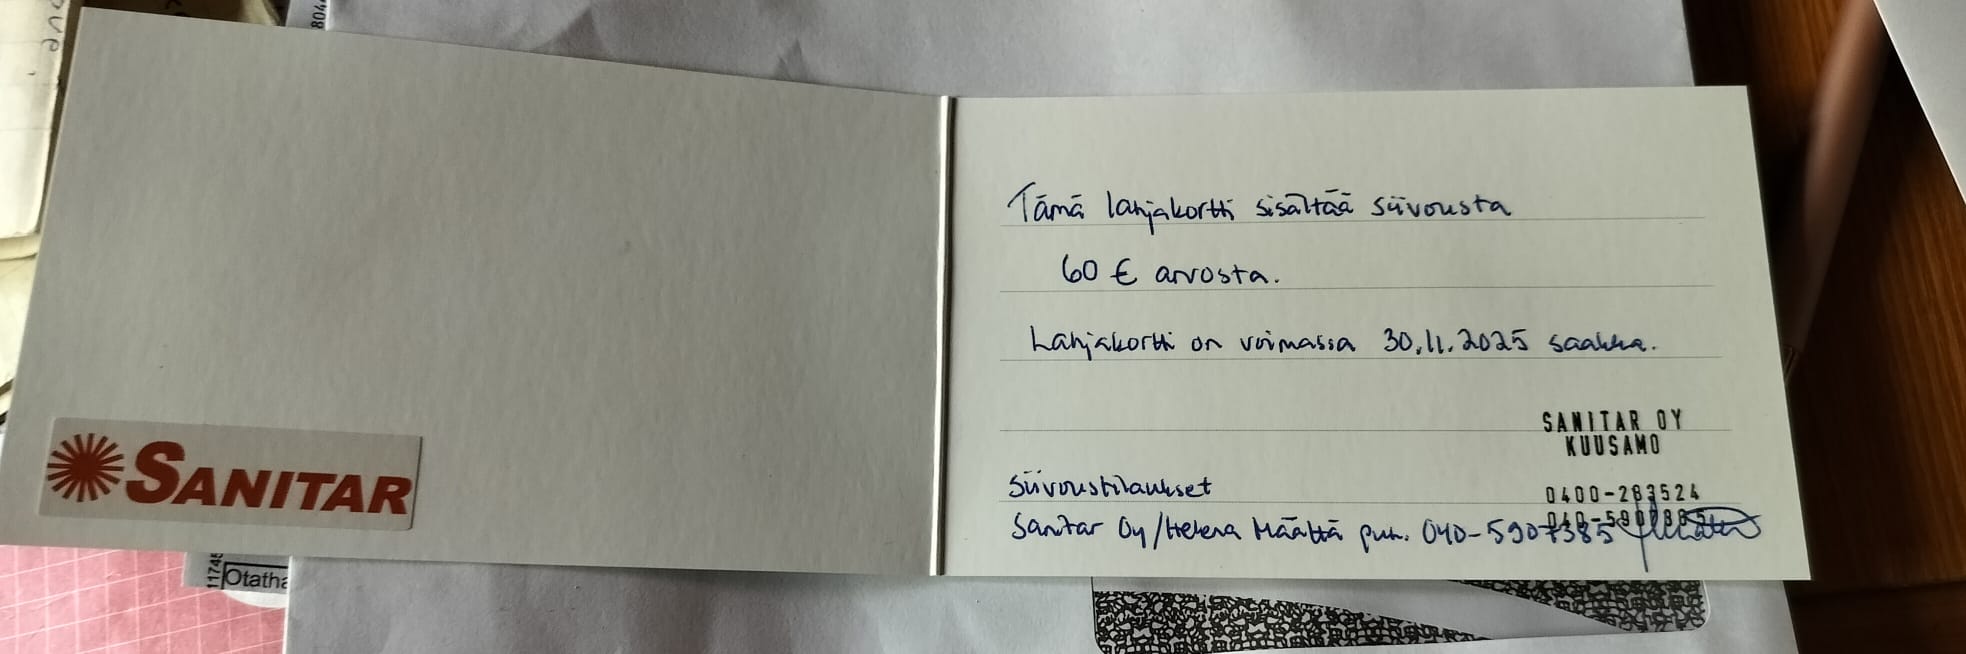 804
SANITAR
Tämä lahjakortti sisältää siivousta
60 € arvosta.
Lahjakortti on voimassa 30.11.2025 saakka.
SANITAR OY
KUUSAMO
0400-283524
Siivoustilaukset
Sanitar Oy/Helena Määttä puh. 040-5907385
11745
Otatha